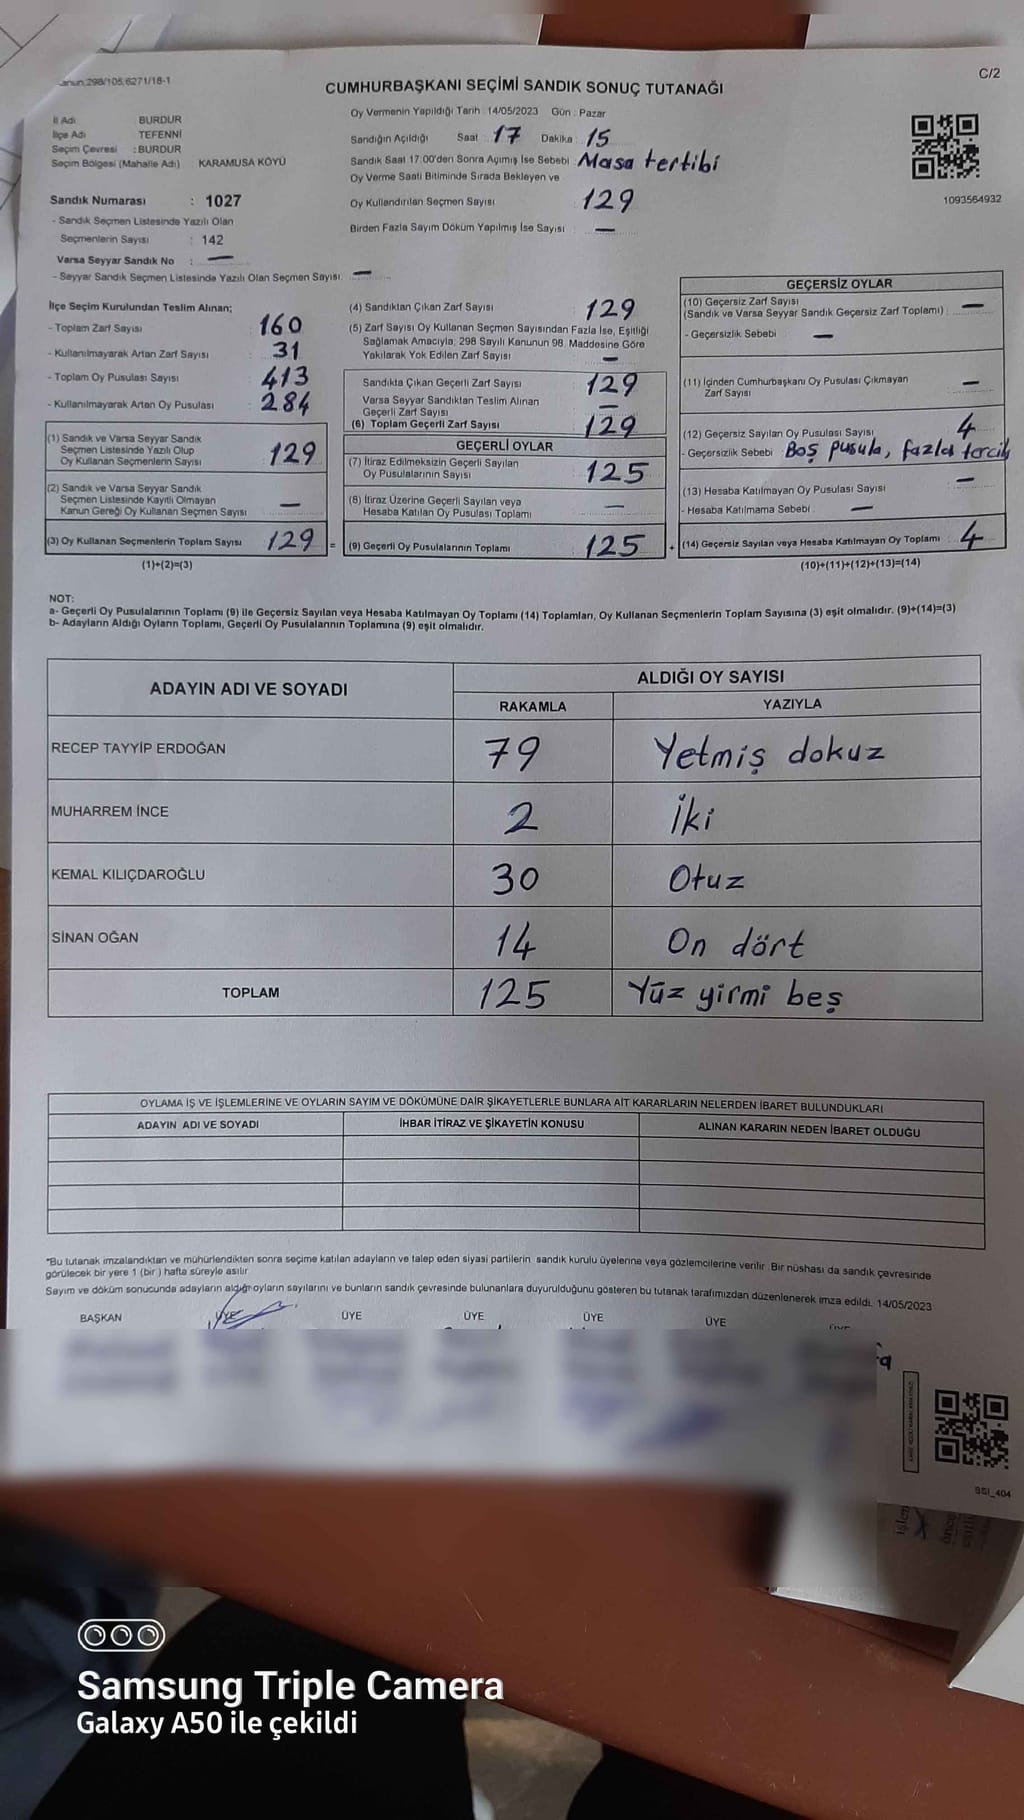 C/2
298/105,6271/18-1
CUMHURBAŞKANI SEÇİMİ SANDIK SONUÇ TUTANAĞI
İl Adı : BURDUR
İlçe Adı : TEFENNİ
Seçim Çevresi : BURDUR
Seçim Bölgesi (Mahalle Adı) : KARAMUSA KÖYÜ
Sandık Numarası : 1027
- Sandık Seçmen Listesinde Yazılı Olan
Seçmenlerin Sayısı : 142
Varsa Seyyar Sandık No : —
- Seyyar Sandık Seçmen Listesinde Yazılı Olan Seçmen Sayısı: —
Oy Vermenin Yapıldığı Tarih : 14/05/2023 Gün : Pazar
Sandığın Açıldığı Saat : 17 Dakika : 15
Sandık Saat 17:00'den Sonra Açımış İse Sebebi : Masa tertibi
Oy Verme Saati Bitiminde Sırada Bekleyen ve
Oy Kullandırılan Seçmen Sayısı : 129
Birden Fazla Sayım Döküm Yapılmış İse Sayısı : —
1093564932
İlçe Seçim Kurulundan Teslim Alınan;
- Toplam Zarf Sayısı : 160
- Kullanılmayarak Artan Zarf Sayısı : 31
- Toplam Oy Pusulası Sayısı : 413
- Kullanılmayarak Artan Oy Pusulası : 284
(1) Sandık ve Varsa Seyyar Sandık
Seçmen Listesinde Yazılı Olup
Oy Kullanan Seçmenlerin Sayısı : 129
(2) Sandık ve Varsa Seyyar Sandık
Seçmen Listesinde Kayıtlı Olmayan
Kanun Gereği Oy Kullanan Seçmen Sayısı : —
(3) Oy Kullanan Seçmenlerin Toplam Sayısı : 129 =
(1)+(2)=(3)
(4) Sandıktan Çıkan Zarf Sayısı : 129
(5) Zarf Sayısı Oy Kullanan Seçmen Sayısından Fazla İse, Eşitliği
Sağlamak Amacıyla; 298 Sayılı Kanunun 98. Maddesine Göre
Yakılarak Yok Edilen Zarf Sayısı : —
Sandıkta Çıkan Geçerli Zarf Sayısı : 129
Varsa Seyyar Sandıktan Teslim Alınan
Geçerli Zarf Sayısı : —
(6) Toplam Geçerli Zarf Sayısı : 129
GEÇERLİ OYLAR
(7) İtiraz Edilmeksizin Geçerli Sayılan
Oy Pusulalarının Sayısı : 125
(8) İtiraz Üzerine Geçerli Sayılan veya
Hesaba Katılan Oy Pusulası Toplamı : —
(9) Geçerli Oy Pusulalarının Toplamı : 125 +
GEÇERSİZ OYLAR
(10) Geçersiz Zarf Sayısı
(Sandık ve Varsa Seyyar Sandık Geçersiz Zarf Toplamı) : —
- Geçersizlik Sebebi : —
(11) İçinden Cumhurbaşkanı Oy Pusulası Çıkmayan
Zarf Sayısı : —
(12) Geçersiz Sayılan Oy Pusulası Sayısı : 4
- Geçersizlik Sebebi : Boş pusula, fazla tercih
(13) Hesaba Katılmayan Oy Pusulası Sayısı : —
- Hesaba Katılmama Sebebi : —
(14) Geçersiz Sayılan veya Hesaba Katılmayan Oy Toplamı : 4
(10)+(11)+(12)+(13)=(14)
NOT:
a- Geçerli Oy Pusulalarının Toplamı (9) ile Geçersiz Sayılan veya Hesaba Katılmayan Oy Toplamı (14) Toplamları, Oy Kullanan Seçmenlerin Toplam Sayısına (3) eşit olmalıdır. (9)+(14)=(3)
b- Adayların Aldığı Oyların Toplamı, Geçerli Oy Pusulalarının Toplamına (9) eşit olmalıdır.
ADAYIN ADI VE SOYADI ALDIĞI OY SAYISI
RAKAMLA YAZIYLA
RECEP TAYYİP ERDOĞAN 79 Yetmiş dokuz
MUHARREM İNCE 2 İki
KEMAL KILIÇDAROĞLU 30 Otuz
SİNAN OĞAN 14 On dört
TOPLAM 125 Yüz yirmi beş
OYLAMA İŞ VE İŞLEMLERİNE VE OYLARIN SAYIM VE DÖKÜMÜNE DAİR ŞİKAYETLERLE BUNLARA AİT KARARLARIN NELERDEN İBARET BULUNDUKLARI
ADAYIN ADI VE SOYADI İHBAR İTİRAZ VE ŞİKAYETİN KONUSU ALINAN KARARIN NEDEN İBARET OLDUĞU
*Bu tutanak imzalandıktan ve mühürlendikten sonra seçime katılan adayların ve talep eden siyasi partilerin sandık kurulu üyelerine veya gözlemcilerine verilir. Bir nüshası da sandık çevresinde
görülecek bir yere 1 (bir) hafta süreyle asılır.
Sayım ve döküm sonucunda adayların aldığı oyların sayılarını ve bunların sandık çevresinde bulunanlara duyurulduğunu gösteren bu tutanak tarafımızdan düzenlenerek imza edildi. 14/05/2023
BAŞKAN ÜYE ÜYE ÜYE ÜYE ÜYE
SSI_404
Samsung Triple Camera
Galaxy A50 ile çekildi